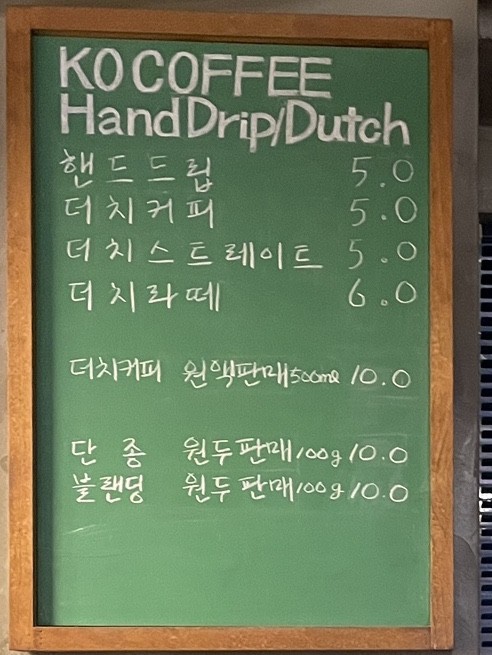 KO COFFEE
Hand Drip/Dutch
핸드드립 5.0
더치커피 5.0
더치스트레이트 5.0
더치라떼 6.0
더치커피 원액판매 500ml 10.0
단종 원두판매 100g 10.0
블랜딩 원두판매 100g 10.0